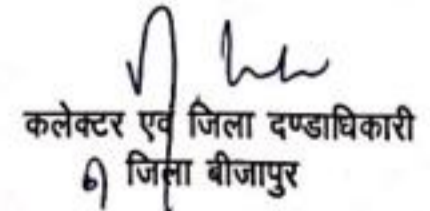 कलेक्टर एवं जिला दण्डाधिकारी
जिला बीजापुर